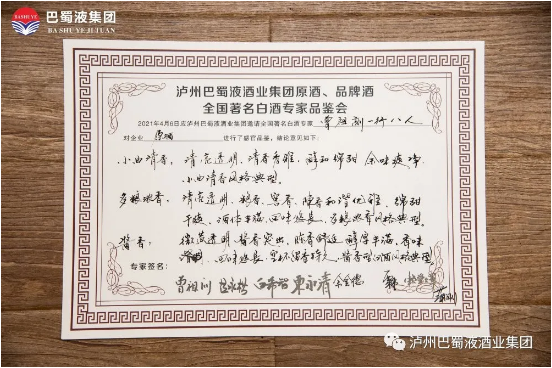 巴蜀液集团
BASHUYE
BA SHU YE JI TUAN
泸州巴蜀液酒业集团原酒、品牌酒
全国著名白酒专家品鉴会
2021年4月6日应泸州巴蜀液酒业集团邀请全国著名白酒专家 曾祖训一行八人
对企业 原酒 进行了感官品鉴,结论意见如下:
小曲清香: 清亮透明、清香秀雅、醇和绵甜 余味爽净
小曲清香风格典型。
多粮浓香: 清亮透明、粮香、窖香、陈香和谐优雅、绵甜
干爽、酒体丰满、回味悠长、多粮浓香风格典型。
酱香: 微黄透明、酱香突出、陈香舒适、醇厚丰满、香味
回味悠长、空杯留香持久、酱香型酒风格典型
专家签名:
曾祖训
泸州巴蜀液酒业集团